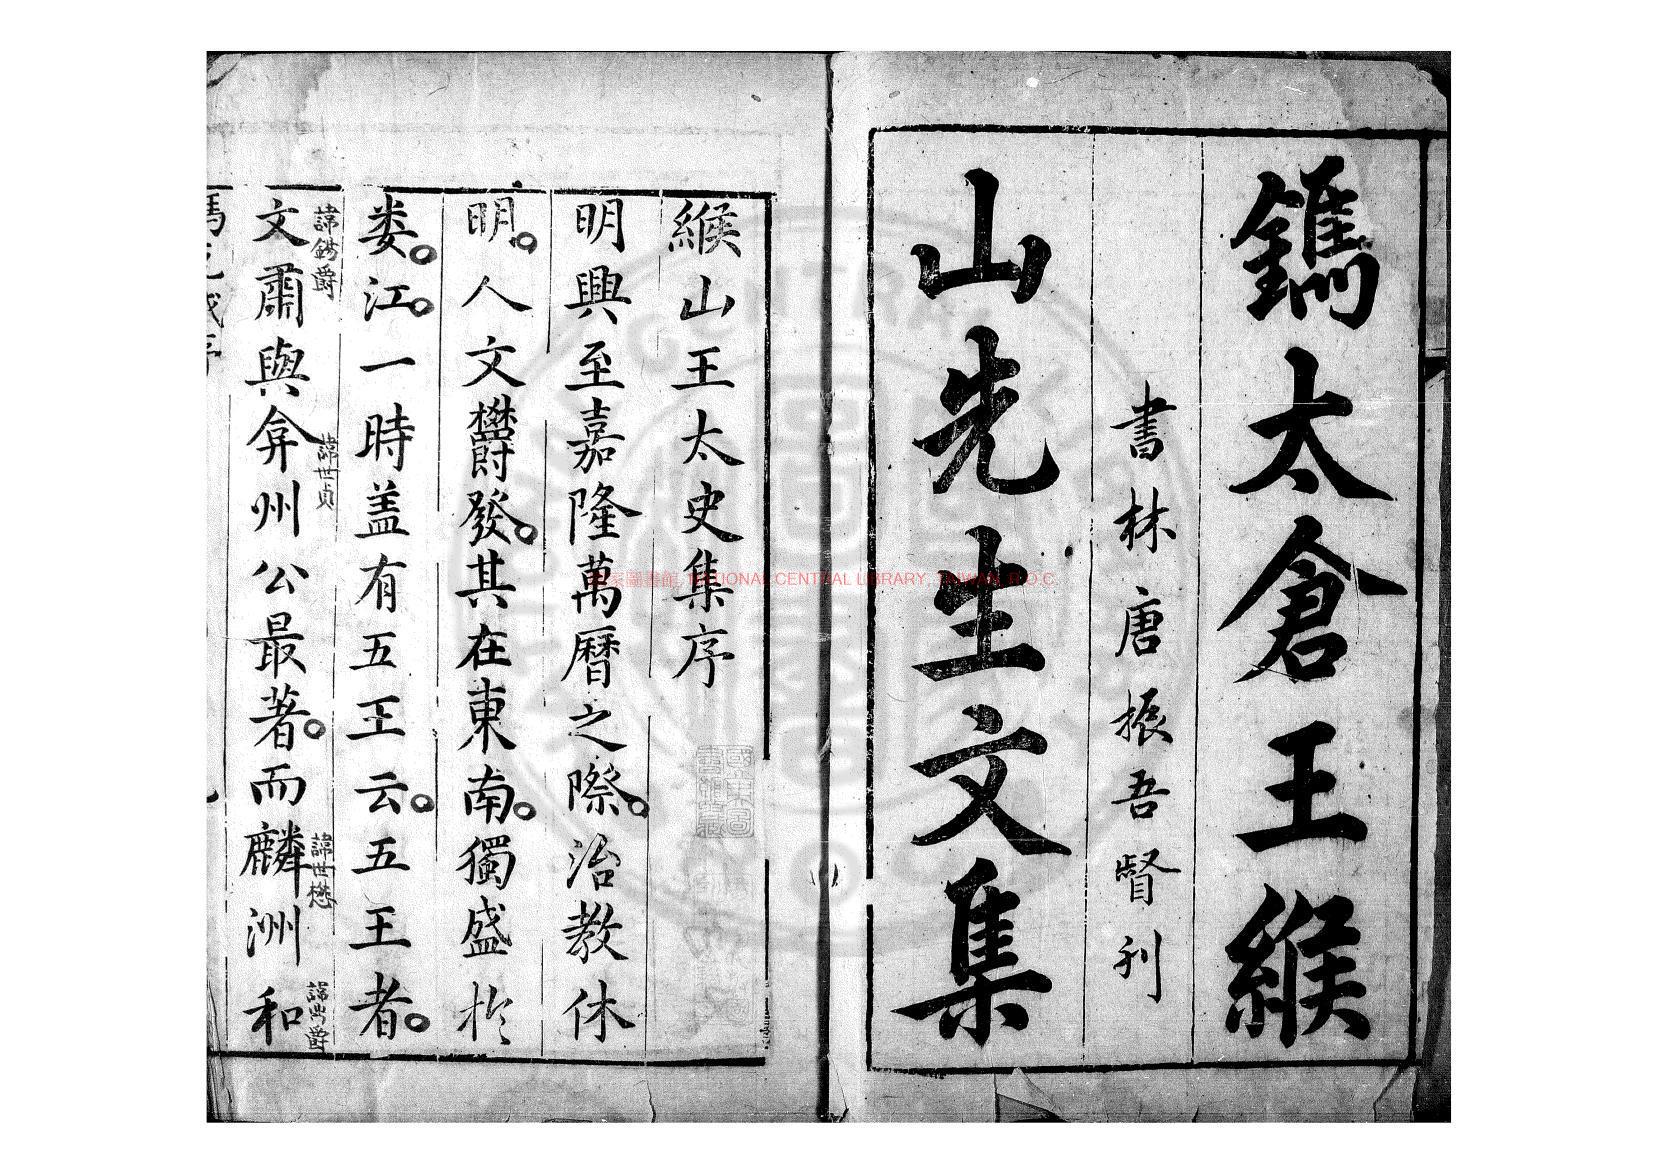 鐫太倉王緱
書林唐振吾督刊
山先生文集
緱山王太史集序
明興至嘉隆萬曆之際治教休
明人文欝發其在東南獨盛於
娄江一時盖有五王云五王者
諱錫爵
諱世貞
諱世懋
諱鼎爵
文肅與弇州公最著而麟洲和
國家圖書館, NATIONAL CENTRAL LIBRARY, TAIWAN, R.O.C